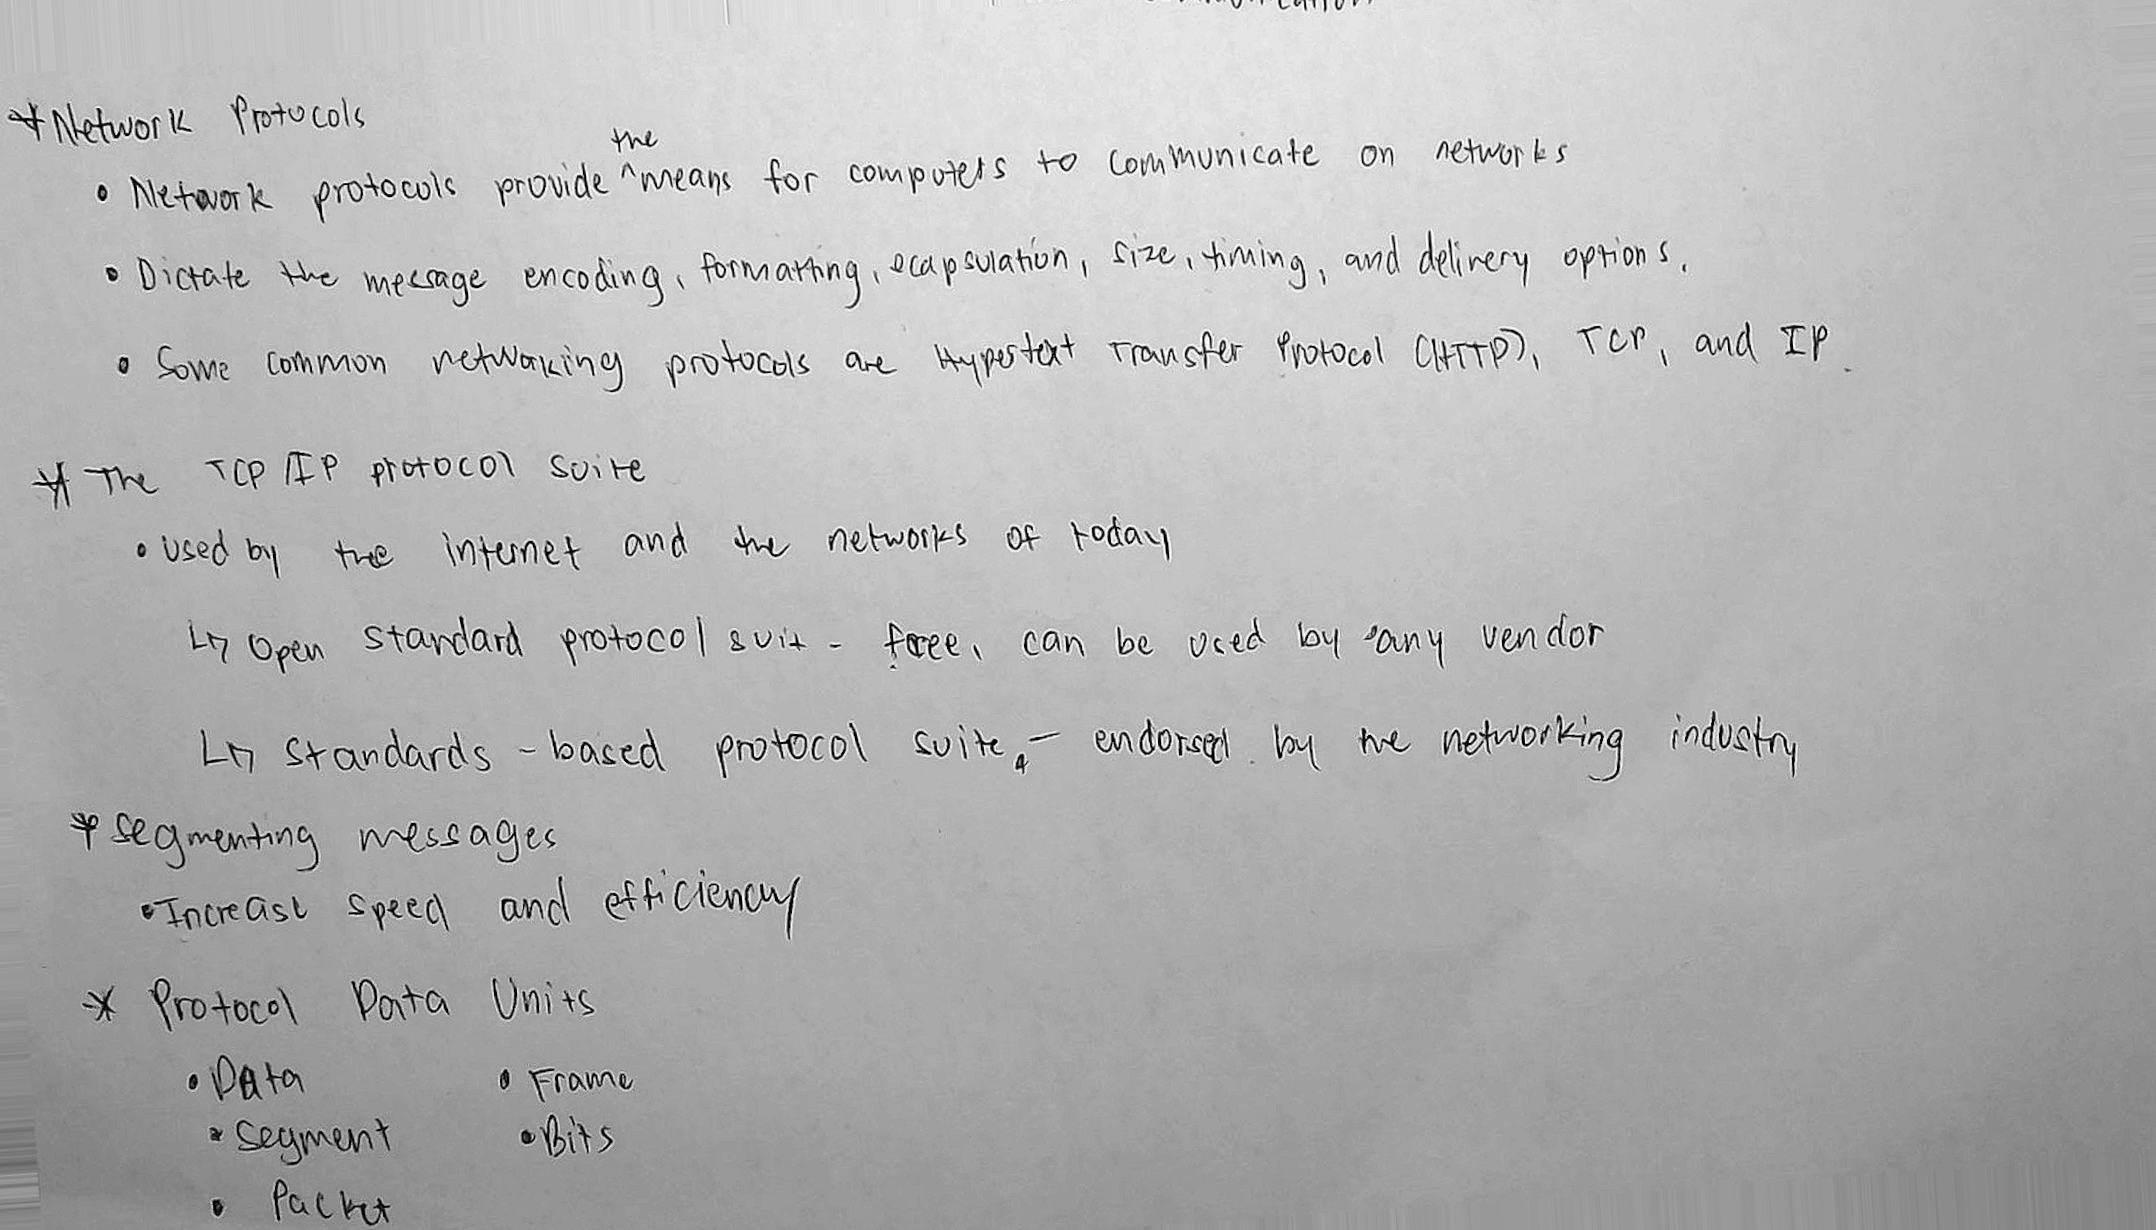 * Network Protocols
• Network protocols provide ^the means for computers to communicate on networks
• Dictate the message encoding, formatting, ecapsulation, size, timing, and delivery options.
• Some common networking protocols are Hypertext Transfer Protocol (HTTP), TCP, and IP.
* The TCP/IP protocol suite
• Used by the internet and the networks of today
↳ Open standard protocol suit - free, can be used by any vendor
↳ Standards-based protocol suite, - endorsed by the networking industry
* Segmenting messages
• Increase speed and efficiency
* Protocol Data Units
• Data
• Segment
• Packet
• Frame
• Bits